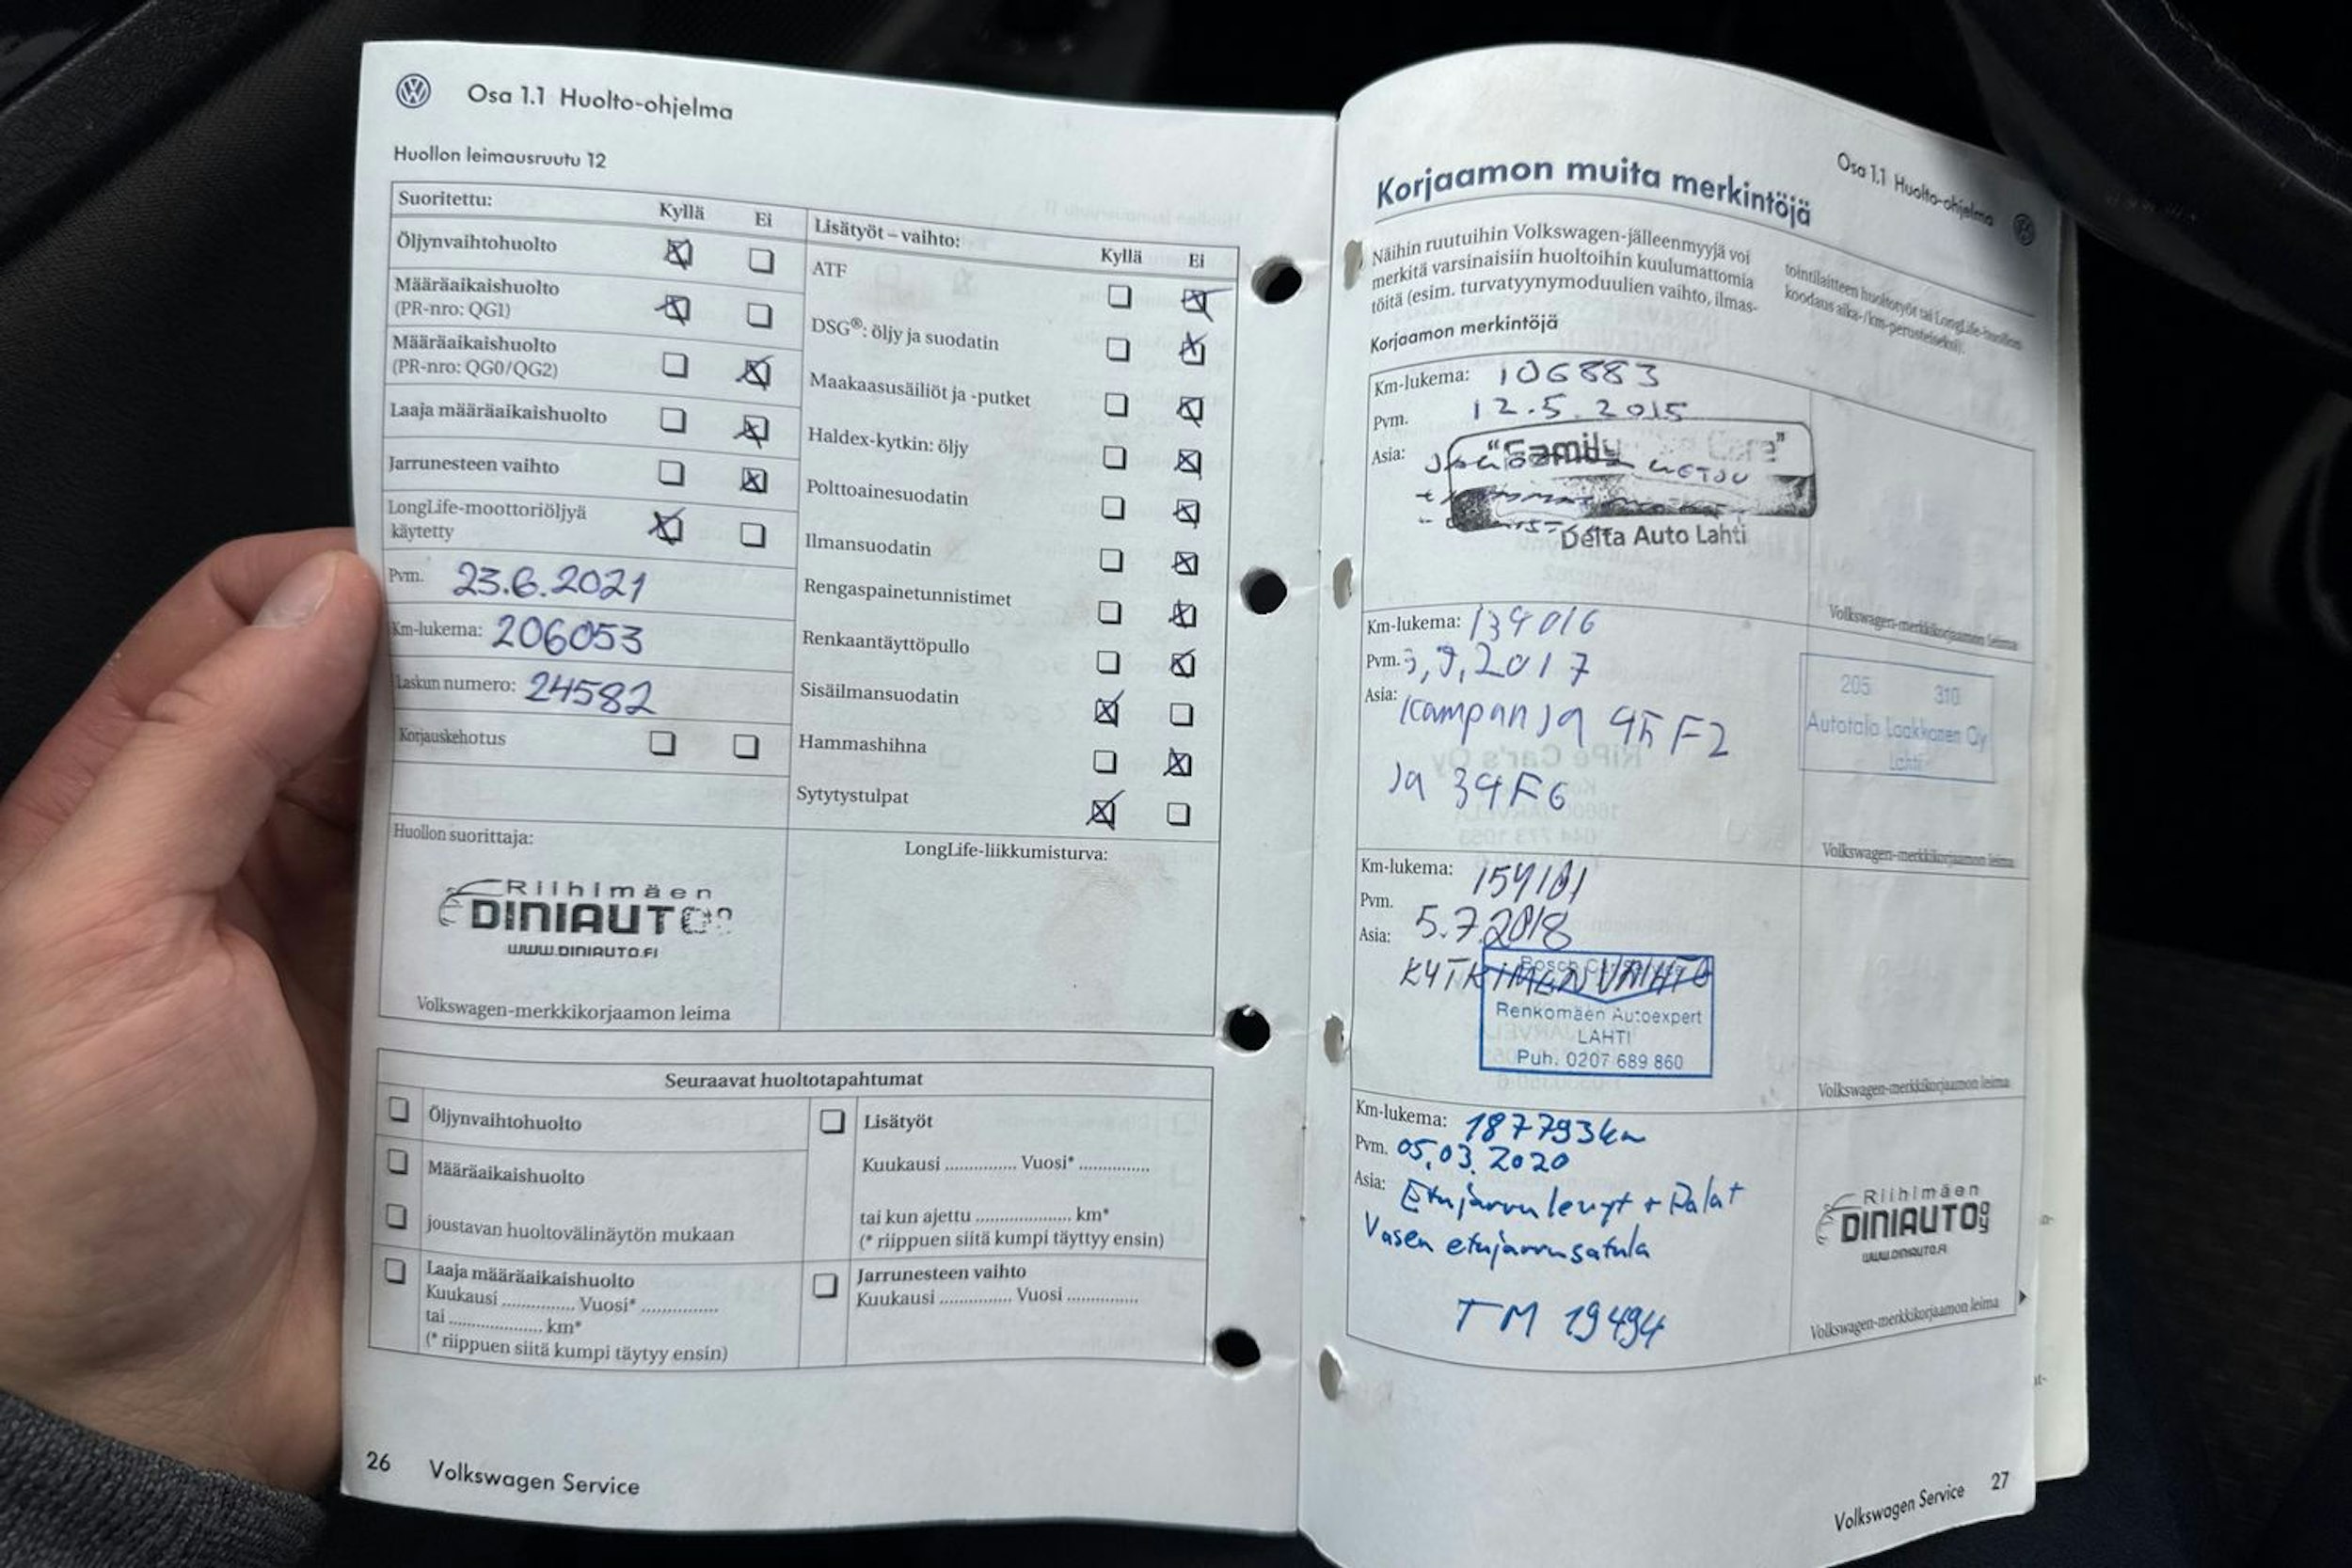 Osa 1.1 Huolto-ohjelma
Huollon leimausruutu 12
Suoritettu: Kyllä Ei
Öljynvaihtohuolto
Määräaikaishuolto
(PR-nro: QG1)
Määräaikaishuolto
(PR-nro: QG0/QG2)
Laaja määräaikaishuolto
Jarrunesteen vaihto
LongLife-moottoriöljyä
käytetty
Pvm. 23.6.2021
Km-lukema: 206053
Laskun numero: 24582
Korjauskehotus
Lisätyöt – vaihto: Kyllä Ei
ATF
DSG®: öljy ja suodatin
Maakaasusäiliöt ja -putket
Haldex-kytkin: öljy
Polttoainesuodatin
Ilmansuodatin
Rengaspainetunnistimet
Renkaantäyttöpullo
Sisäilmansuodatin
Hammashihna
Sytytystulpat
Huollon suorittaja:
Riihimäen
DINIAUTO
WWW.DINIAUTO.FI
Volkswagen-merkkikorjaamon leima
LongLife-liikkumisturva:
Seuraavat huoltotapahtumat
Öljynvaihtohuolto
Määräaikaishuolto
joustavan huoltovälinäytön mukaan
Laaja määräaikaishuolto
Kuukausi .............. Vuosi* ...............
tai .................... km*
(* riippuen siitä kumpi täytyy ensin)
Lisätyöt
Kuukausi .............. Vuosi* ..............
tai kun ajettu .................... km*
(* riippuen siitä kumpi täyttyy ensin)
Jarrunesteen vaihto
Kuukausi .............. Vuosi ..............
26 Volkswagen Service
Osa 1.1 Huolto-ohjelma
Korjaamon muita merkintöjä
Näihin ruutuihin Volkswagen-jälleenmyyjä voi
merkitä varsinaisiin huoltoihin kuulumattomia
töitä (esim. turvatyynymoduulien vaihto, ilmas-
tointilaitteen huoltotyöt tai LongLife-huollon
koodaus aika-/km-perusteiseksi).
Korjaamon merkintöjä
Km-lukema: 106883
Pvm. 12.5.2015
Asia:
"Family Care"
Delta Auto Lahti
Volkswagen-merkkikorjaamon leima
Km-lukema: 139016
Pvm. 3.9.2017
Asia: Kampanja
ja 34F6
205 310
Autotalo Laakkonen Oy
Lahti
Volkswagen-merkkikorjaamon leima
Km-lukema: 159101
Pvm. 5.7.2018
Asia: KYTKIMEN VAIHTO
Bosch Car Service
Renkomäen Autoexpert
LAHTI
Puh. 0207 689 860
Volkswagen-merkkikorjaamon leima
Km-lukema: 187793km
Pvm. 05.03.2020
Asia: Etujarrulevyt + Palat
Vasen etujarrusatula
TM 19494
Riihimäen
DINIAUTO OY
WWW.DINIAUTO.FI
Volkswagen-merkkikorjaamon leima
Volkswagen Service 27